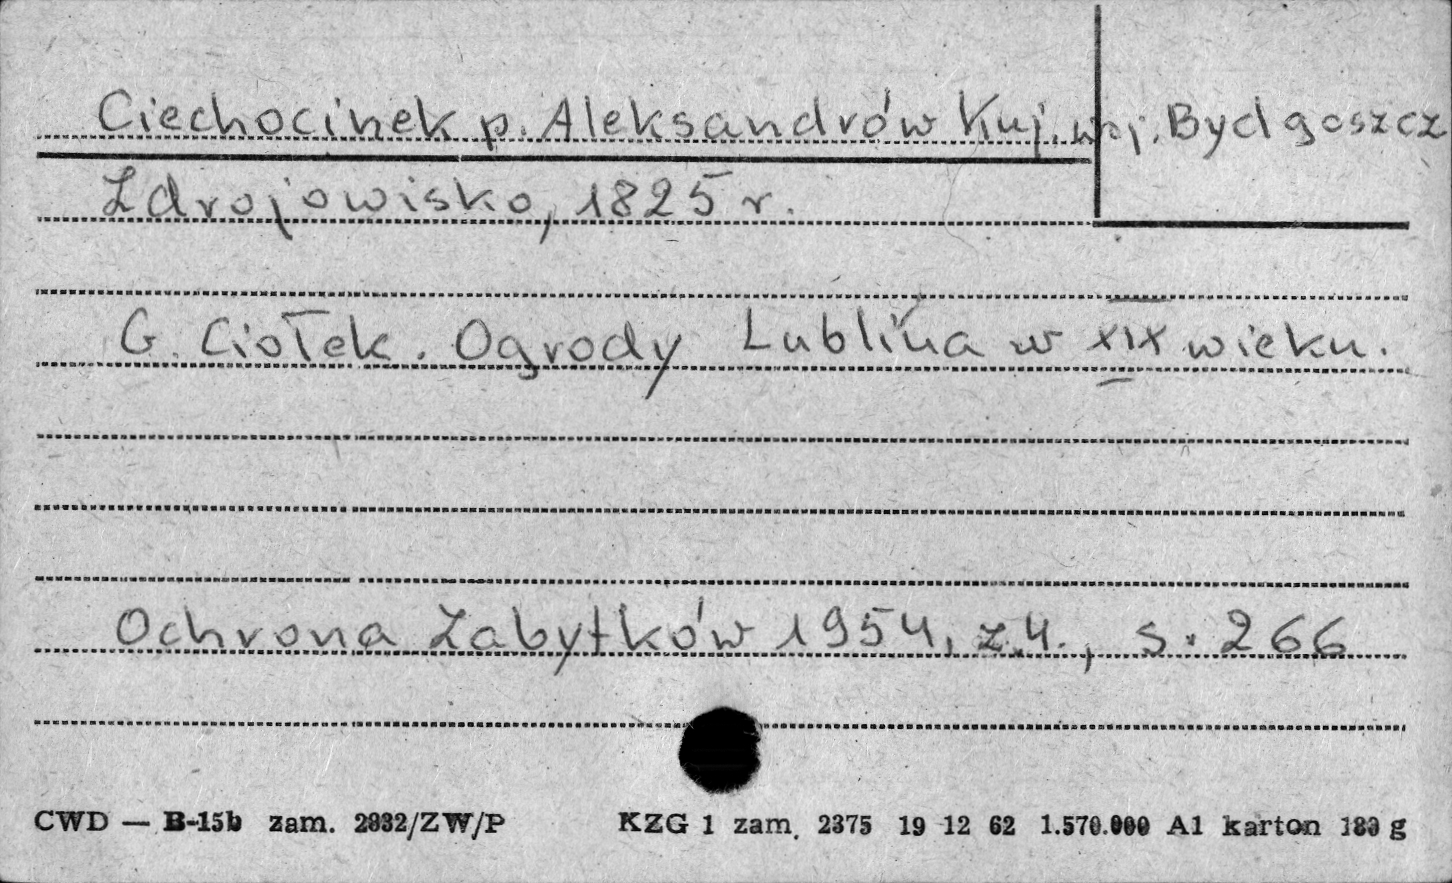 Ciechocinek p. Aleksandrów Kuj. woj. Bydgoszcz
Zdrojowisko, 1825 r.
G. Ciołek. Ogrody Lublina w XIX wieku.
Ochrona Zabytków 1954, z.4., s. 266
CWD — B-15b zam. 2932/ZW/P KZG 1 zam. 2375 19 12 62 1.570.000 A1 karton 180 g